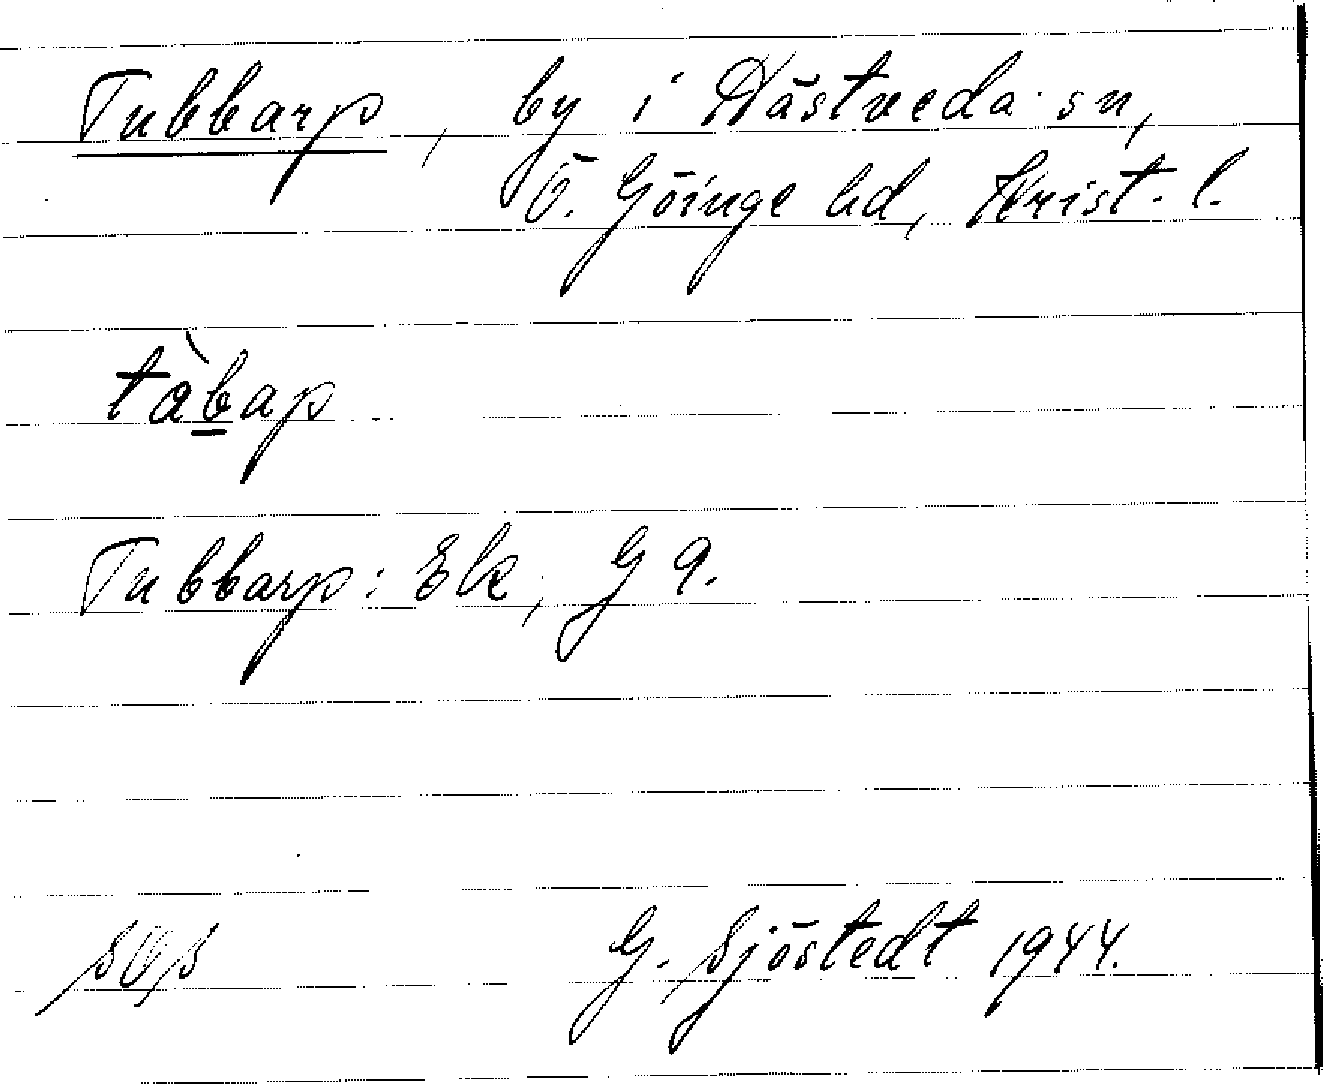 Tubbarp, by i Hästveda sn,
Ö. Göinge hd, Krist. l.
tàbap
Tubbarp: Ek, G 9.
SOS G. Sjöstedt 1944.